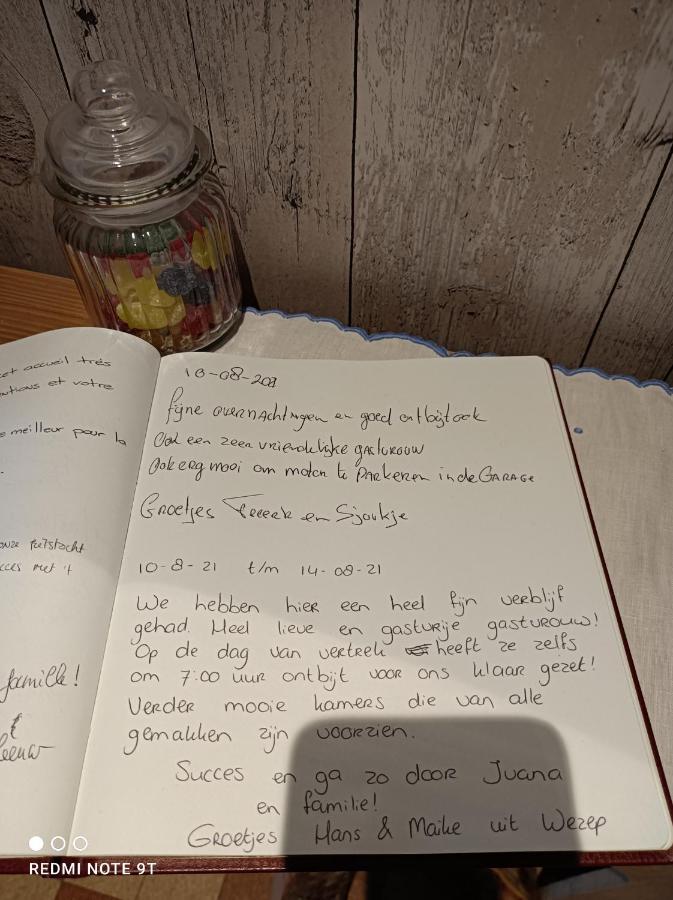 et accueil très
ntions et votre
e meilleur pour la
onze fietstocht
cces met 't
famille!
Leeuw
10-08-2021
fijne overnachtingen en goed ontbijt ook
Ook een zeer vriendelijke gastvrouw
Ook erg mooi om moten te Parkeren in de GARAGE
Groetjes en Sjoukje
10-8-21 t/m 14-08-21
We hebben hier een heel fijn verblijf
gehad. Heel lieve en gastvrije gastvrouw!
Op de dag van vertrek heeft ze zelfs
om 7:00 uur ontbijt voor ons klaar gezet!
Verder mooie kamers die van alle
gemakken zijn voorzien.
Succes en ga zo door Juana
en familie!
Groetjes Hans & Maike uit Wezep
REDMI NOTE 9T